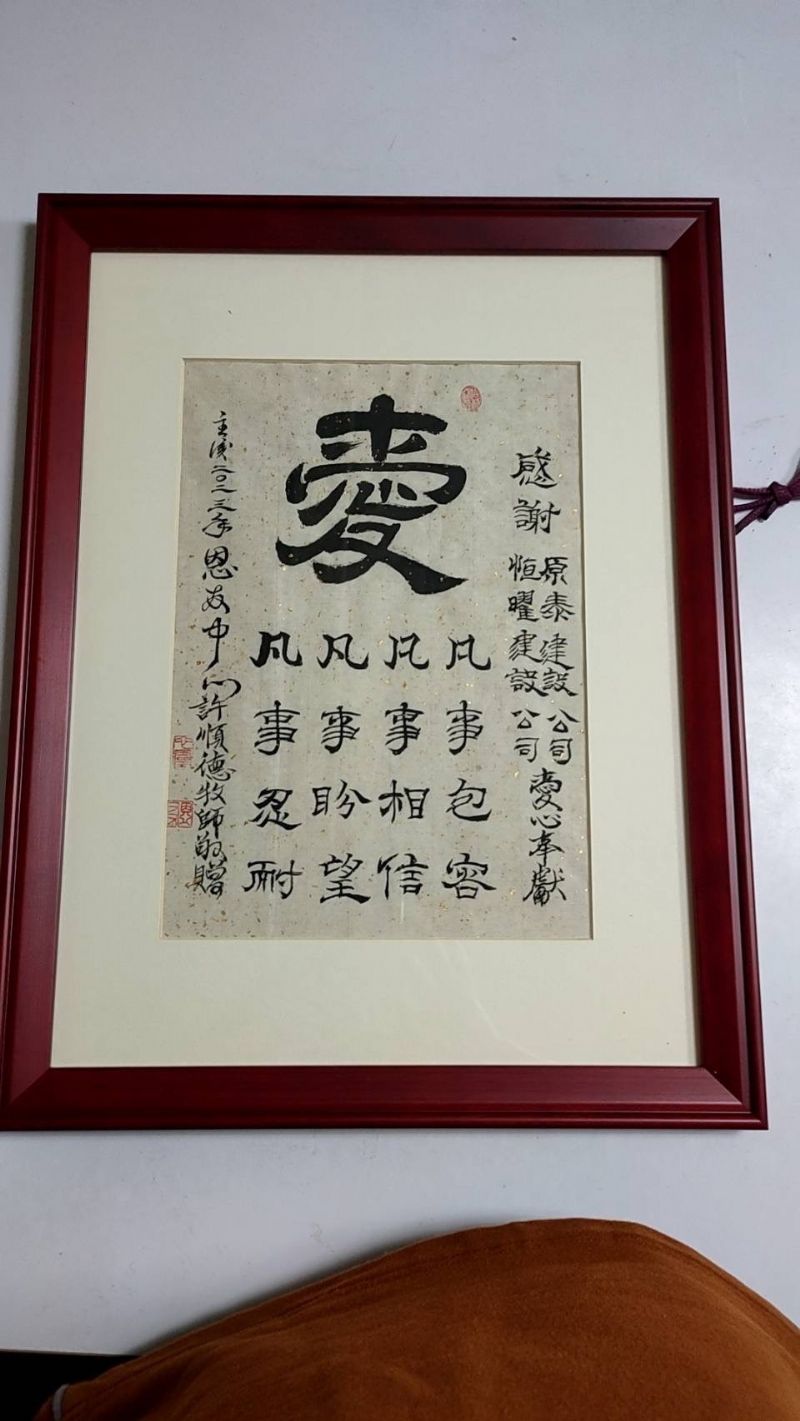 感謝
原泰建設公司
恒曜建設公司
愛心奉獻
愛
凡事包容
凡事相信
凡事盼望
凡事忍耐
主後二〇二三年恩友中心許順德牧師敬贈